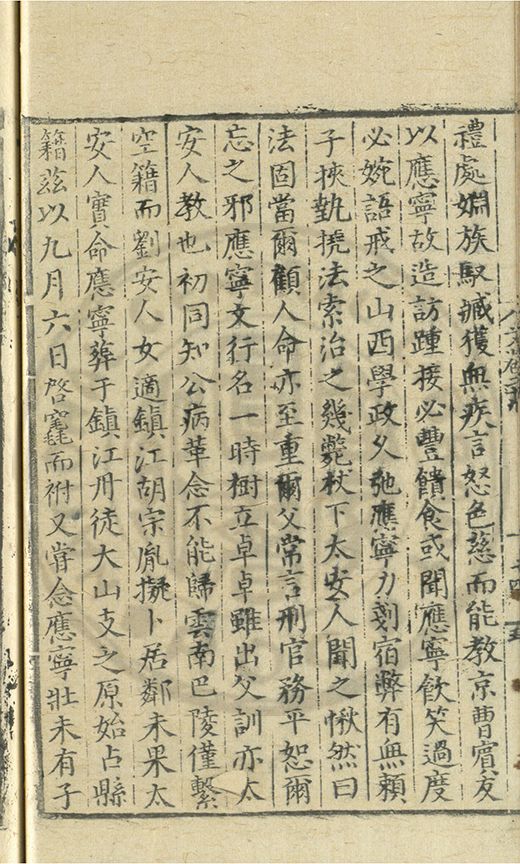 禮處婣族馭臧獲無疾言怒色慈而能教京曹賓友
以應寧故造訪踵接必豐饋食或聞應寧飲笑過度
必婉語戒之山西學政久弛應寧力刻宿弊有無賴
子挾埶撓法索治之幾斃杖下太安人聞之愀然曰
法固當爾顧人命亦至重爾父常言刑官務平恕爾
忘之邪應寧文行名一時樹立卓卓雖出父訓亦太
安人教也初同知公病革念不能歸雲南巴陵僅繫
空籍而劉安人女適鎮江胡宗胤擬卜居鄰未果太
安人實命應寧葬于鎮江丹徒大山支之原始占縣
籍茲以九月六日啓竁而祔又嘗念應寧壯未有子